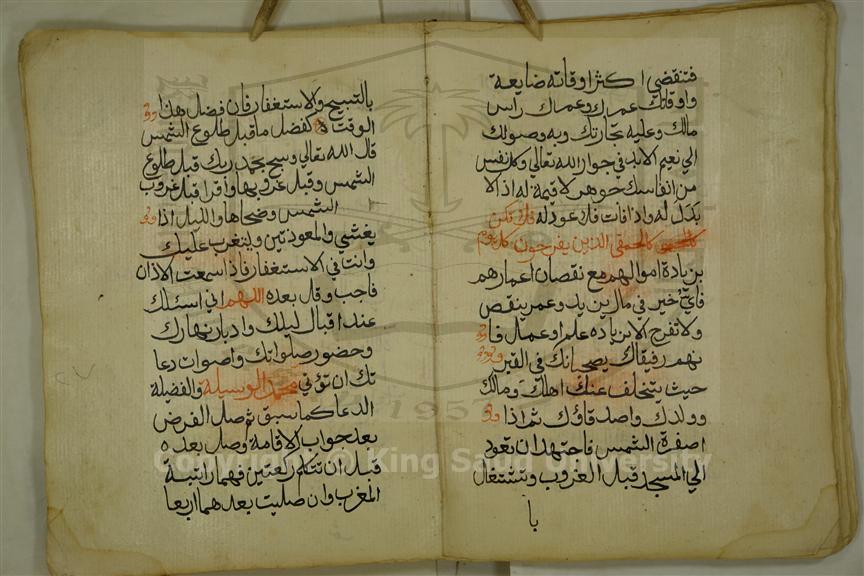 فتنقضي اكثر اوقاته ضايعة
واوقاتك عمرك وعمرك راس
مالك وعليه تجارتك وبه وصولك
الي نعيم الابد في جوار الله تعالي وكل نفس
من انفاسك جوهر لا قيمة له اذ لا
بدل له واذا فات فلا عود له فلا تكن
كالحمقي الذين يفرحون كل يوم
بزيادة اموالهم مع نقصان اعمارهم
فاي خير في مال يزيد وعمر ينقص
ولا تفرح الا بزياده علم او عمل فا
نهم رفيقاك يصحبانك في القبر
حيث يتخلف عنك اهلك ومالك
وولدك واصدقاؤك ثم اذا
اصفرة الشمس فاجتهد ان تعود
الي المسجد قبل الغروب وتشتغل
با
بالتسبيح والاستغفار فان فضل هذا
الوقت كفضل ما قبل طلوع الشمس
قال الله تعالي وسبح بحمد ربك قبل طلوع
الشمس وقبل غروبها واقرا قبل غروب
الشمس وضحاها والليل اذا
يغشي والمعوذتين ولتغرب عليك
وانت في الاستغفار فاذا سمعت الاذان
فاجب وقل بعده اللهم اني اسئلك
عند اقبال ليلك وادبار نهارك
وحضور صلواتك واصوات دعا
تك ان تؤتي محمد الوسيله والفضيلة
الدعا كما سبق ثم صل الفرض
بعد جواب الاقامة وصل بعده
قبل ان تتكلم ركعتين فهما راتبة
المغرب وان صليت بعدهما اربعا
Copyright © King Saud University
1957